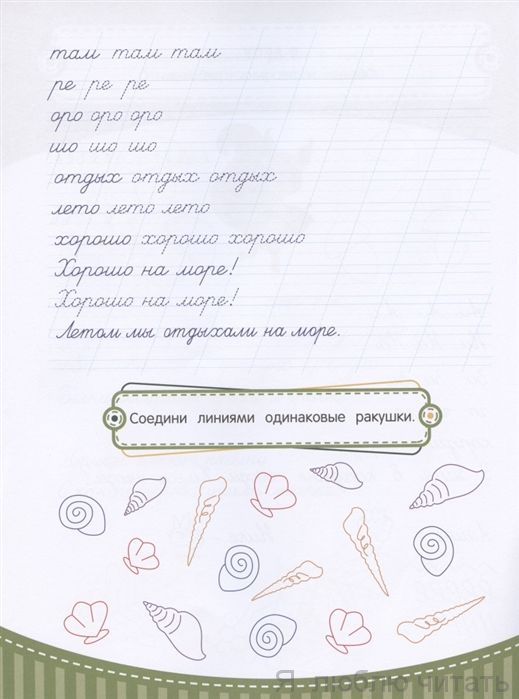 там там там
ре ре ре
оро оро оро
шо шо шо
отдых отдых отдых
лето лето лето
хорошо хорошо хорошо
Хорошо на море!
Хорошо на море!
Летом мы отдыхали на море.
Соедини линиями одинаковые ракушки.
Я люблю читать